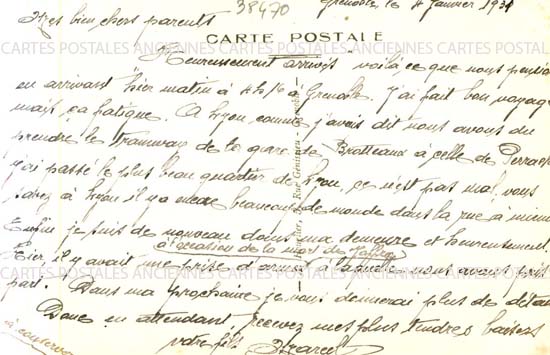 38470
Grenoble, le 4 Janvier 1931
Mes bien chers parents
CARTE POSTALE
Heureusement arrivés voilà ce que nous pensions
CARTES POSTALES ANCIENNES CARTES POSTALES ANCIENNES CARTES POSTALES
en arrivant hier matin à 4h ½ à Grenoble. J'ai fait bon voyage
mais ça fatigue. A Lyon comme j'avais dit nous avons du
prendre le tramway de la gare de Brotteaux à celle de Perrache
j'ai passé le plus beau quartier de Lyon, ce n'est pas mal, vous
savez à Lyon il y a encore beaucoup de monde dans la rue à minuit
Enfin je suis de nouveau dans ma demeure et heureusement.
à l'occasion de la mort de
Hier, il y avait une prise d'armes à laquelle nous avons pris
CARTES POSTALES ANCIENNES CARTES POSTALES ANCIENNES CARTES POSTALES
part. Dans ma prochaine je vous donnerai plus de détails
Donc en attendant, recevez mes plus tendres baisers
votre fils
à conserver